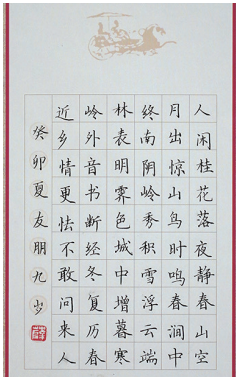 人闲桂花落夜静春山空
月出惊山鸟时鸣春涧中
终南阴岭秀积雪浮云端
林表明霁色城中增暮寒
岭外音书断经冬复历春
近乡情更怯不敢问来人
癸卯夏友朋九岁